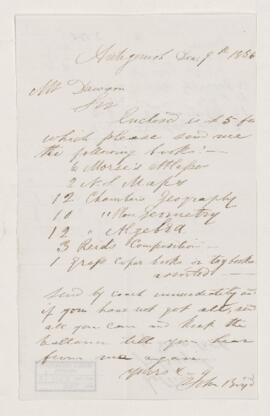 Antigonish Dec 9th 1856
Mr Dawson
Sir
Enclosed is £5 for
which please send me
the following books:—
6 Morse's Atlases
2 N S Maps
12 Chambers Geography
10 " Plan Geometry
12 " Algebra
3 Reids Composition —
1 Copies books or toy books
assorted —
Send by coach immediately and
if you have not got all, send
all you can and keep the
ballance till you hear
from me again
yours &c
John